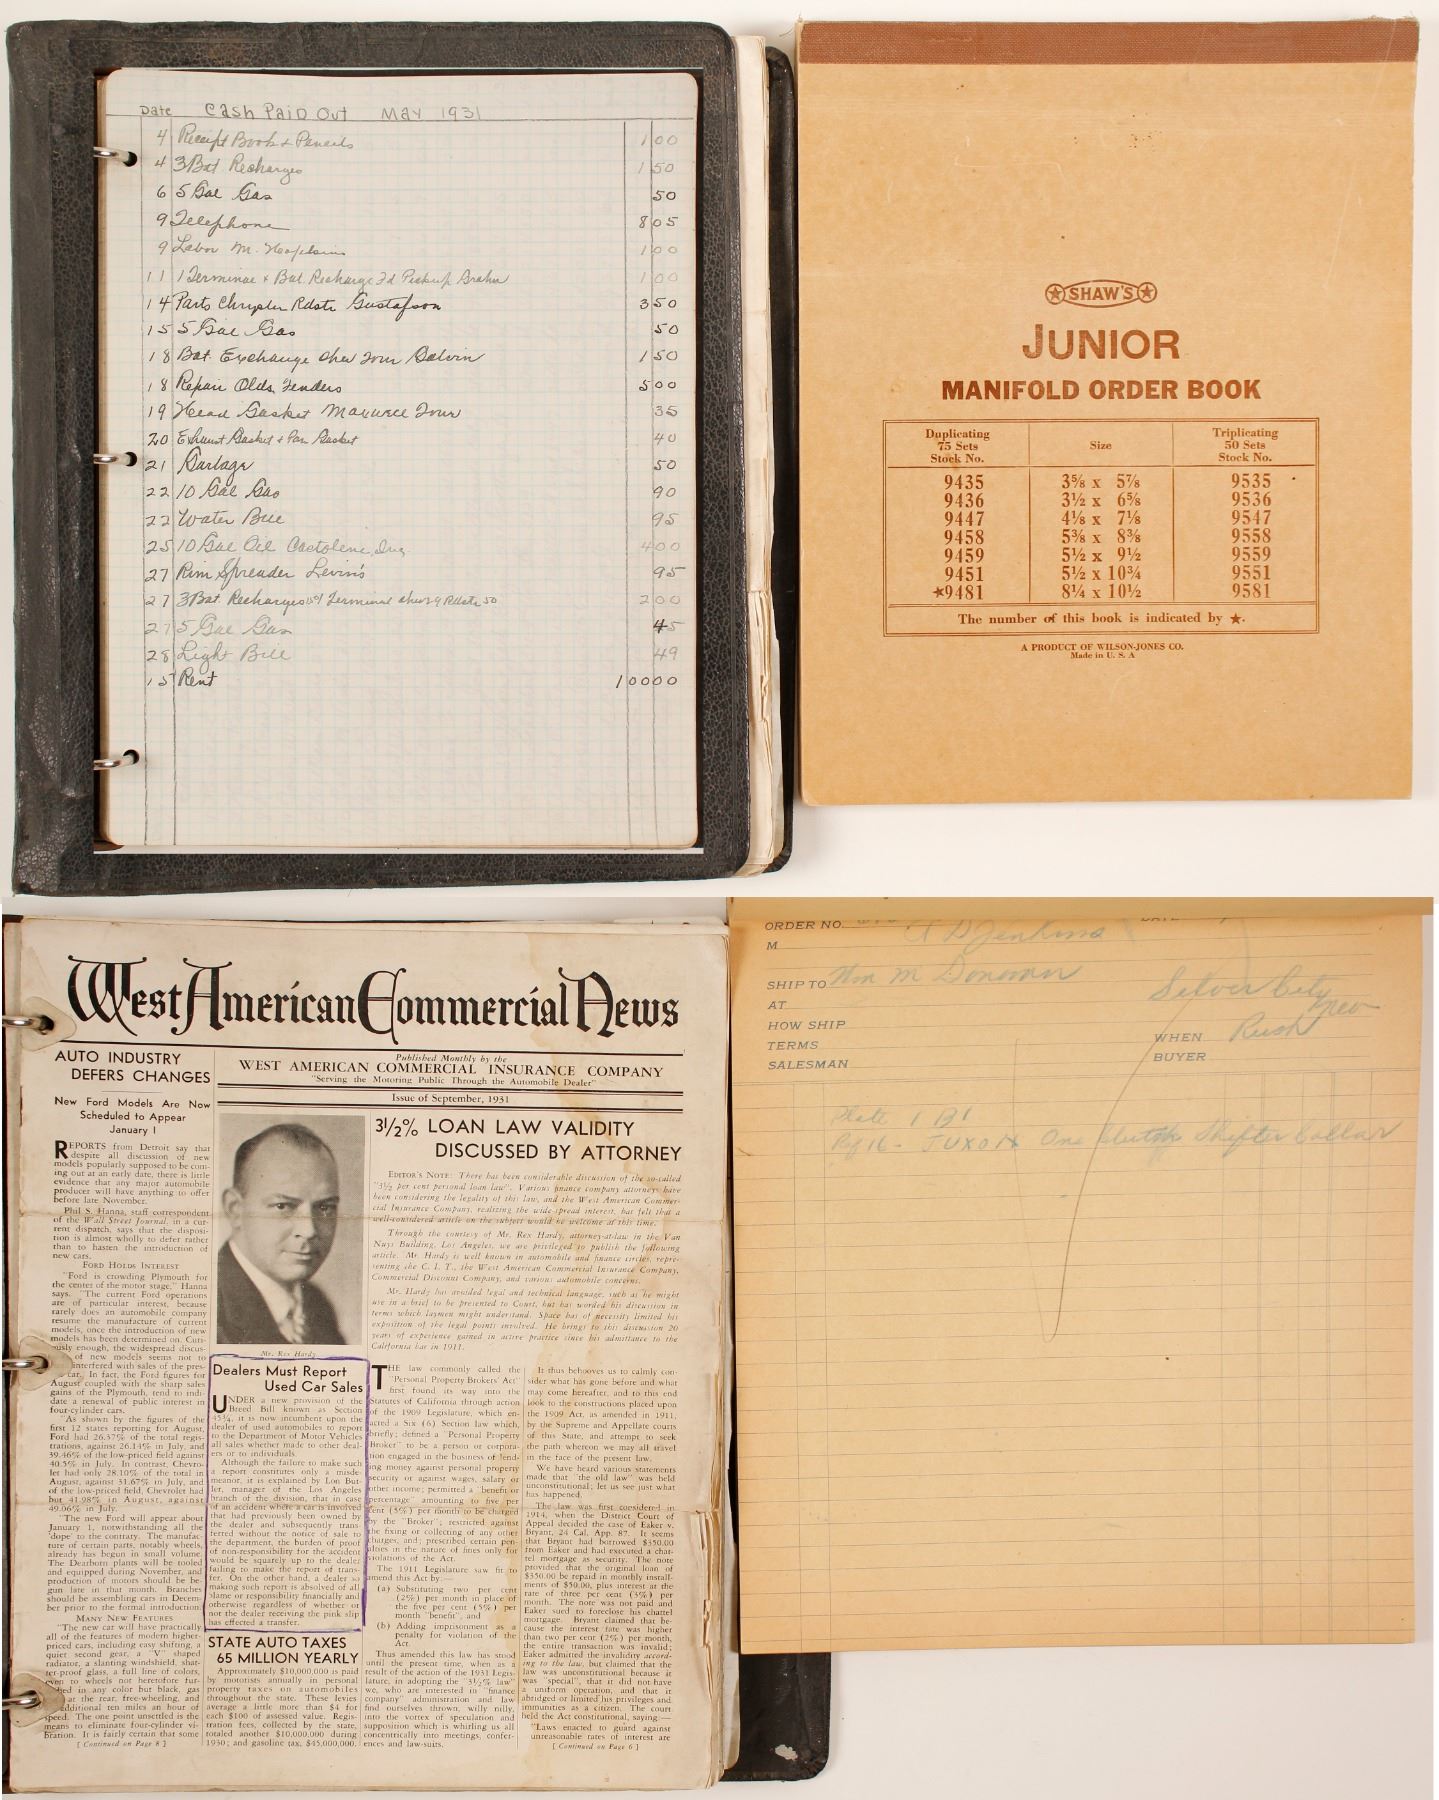 Date Cash Paid Out May 1931
4 Receipt Book & Pencils 1 00
4 3 Bat Recharges 1 50
6 5 Gal Gas 50
9 Telephone 8 05
9 Labor M. Hopkins 1 00
11 1 Terminal & Bat. Recharge Fd Pickup 1 00
14 Parts Chrysler Rdstr Gustafson 3 50
15 5 Gal Gas 50
18 Bat. Exchange Chev Tour 1 50
18 Repair Olds. Fenders 5 00
19 Head Gasket Maxwell Tour 35
20 Exhaust Gasket & Pan Gasket 40
21 Garbage 50
22 10 Gal Gas 90
22 Water Bill 95
25 10 Gal Oil 4 00
27 Rim Spreader Levin's 95
27 3 Bat. Recharges 1 Terminal Chev 29 Rdstr 50 2 00
27 5 Gal Gas 45
28 Light Bill 49
15 Rent 100 00
SHAW'S
JUNIOR
MANIFOLD ORDER BOOK
Duplicating 75 Sets Stock No. Size Triplicating 50 Sets Stock No.
9435 3⅝ x 5⅞ 9535
9436 3½ x 6⅝ 9536
9447 4⅛ x 7⅛ 9547
9458 5⅜ x 8⅜ 9558
9459 5½ x 9½ 9559
9451 5½ x 10¾ 9551
★9481 8¼ x 10½ 9581
The number of this book is indicated by ★.
A PRODUCT OF WILSON-JONES CO.
Made in U. S. A
West American Commercial News
Published Monthly by the
WEST AMERICAN COMMERCIAL INSURANCE COMPANY
"Serving the Motoring Public Through the Automobile Dealer"
Issue of September, 1931
AUTO INDUSTRY
DEFERS CHANGES
New Ford Models Are Now
Scheduled to Appear
January 1
REPORTS from Detroit say that
despite all discussion of new
models popularly supposed to be com-
ing out at an early date, there is little
evidence that any major automobile
producer will have anything to offer
before late November.
Phil S. Hanna, staff correspondent
of the Wall Street Journal, in a cur-
rent dispatch, says that the disposi-
tion is almost wholly to defer rather
than to hasten the introduction of
new cars.
FORD HOLDS INTEREST
"Ford is crowding Plymouth for
the center of the motor stage," Hanna
says. "The current Ford operations
are of particular interest, because
rarely does an automobile company
resume the manufacture of current
models, once the introduction of new
models has been determined on. Curi-
ously enough, the widespread discus-
of new models seems not to
interfered with sales of the pres-
car. In fact, the Ford figures for
August coupled with the sharp sales
gains of the Plymouth, tend to indi-
date a renewal of public interest in
four-cylinder cars.
"As shown by the figures of the
first 12 states reporting for August,
Ford had 26.37% of the total regis-
trations, against 26.14% in July, and
39.46% of the low-priced field against
40.5% in July. In contrast, Chevro-
let had only 28.10% of the total in
August, against 31.67% in July, and
of the low-priced field, Chevrolet had
but 41.98% in August, against
49.06% in July.
"The new Ford will appear about
January 1, notwithstanding all the
'dope' to the contrary. The manufac-
ture of certain parts, notably wheels,
already has begun in small volume.
The Dearborn plants will be tooled
and equipped during November, and
production of motors should be be-
gun late in that month. Branches
should be assembling cars in Decem-
ber prior to the formal introduction.
MANY NEW FEATURES
"The new car will have practically
all of the features of modern higher-
priced cars, including easy shifting, a
quiet second gear, a "V" shaped
radiator, a slanting windshield, shat-
ter-proof glass, a full line of colors,
even to wheels not heretofore fur-
nished in any color but black, gas
at the rear, free-wheeling, and
additional ten miles an hour of
speed. The one point unsettled is the
means to eliminate four-cylinder vi-
bration. It is fairly certain that some
[ Continued on Page 8 ]
Mr. Rex Hardy
Dealers Must Report
Used Car Sales
UNDER a new provision of the
Breed Bill known as Section
45¾, it is now incumbent upon the
dealer of used automobiles to report
to the Department of Motor Vehicles
all sales whether made to other deal-
ers or to individuals.
Although the failure to make such
a report constitutes only a misde-
meanor, it is explained by Lon But-
ler, manager of the Los Angeles
branch of the division, that in case
of an accident where a car is involved
that had previously been owned by
the dealer and subsequently trans-
ferred without the notice of sale to
the department, the burden of proof
of non-responsibility for the accident
would be squarely up to the dealer
failing to make the report of trans-
fer. On the other hand, a dealer so
making such report is absolved of all
blame or responsibility financially and
otherwise regardless of whether or
not the dealer receiving the pink slip
has effected a transfer.
STATE AUTO TAXES
65 MILLION YEARLY
Approximately $10,000,000 is paid
by motorists annually in personal
property taxes on automobiles
throughout the state. These levies
average a little more than $4 for
each $100 of assessed value. Regis-
tration fees, collected by the state,
totaled another $10,000,000 during
1930; and gasoline tax, $45,000,000.
3½% LOAN LAW VALIDITY
DISCUSSED BY ATTORNEY
EDITOR'S NOTE: There has been considerable discussion of the so-called
"3½ per cent personal loan law". Various finance company attorneys have
been considering the legality of this law, and the West American Commer-
cial Insurance Company, realizing the wide-spread interest, has felt that a
well-considered article on the subject would be welcome at this time.
Through the courtesy of Mr. Rex Hardy, attorney-at-law in the Van
Nuys Building, Los Angeles, we are privileged to publish the following
article. Mr. Hardy is well known in automobile and finance circles, repre-
senting the C. I. T., the West American Commercial Insurance Company,
Commercial Discount Company, and various automobile concerns.
Mr. Hardy has avoided legal and technical language, such as he might
use in a brief to be presented to Court, but has worded his discussion in
terms which laymen might understand. Space has of necessity limited his
exposition of the legal points involved. He brings to this discussion 20
years of experience gained in active practice since his admittance to the
California bar in 1911.
THE law commonly called the
"Personal Property Brokers' Act"
first found its way into the
Statutes of California through action
of the 1909 Legislature, which en-
acted a Six (6) Section law which,
briefly; defined a "Personal Property
Broker" to be a person or corpora-
tion engaged in the business of lend-
ing money against personal property
security or against wages, salary or
other income; permitted a "benefit or
percentage" amounting to five per
cent (5%) per month to be charged
by the "Broker"; restricted against
the fixing or collecting of any other
charges, and; prescribed certain pen-
alties in the nature of fines only for
violations of the Act.
The 1911 Legislature saw fit to
amend this Act by:—
(a) Substituting two per cent
(2%) per month in place of
the five per cent (5%) per
month "benefit", and
(b) Adding imprisonment as a
penalty for violation of the
Act.
Thus amended this law has stood
until the present time, when as a
result of the action of the 1931 Legis-
lature, in adopting the "3½% law"
we, who are interested in "finance
company" administration and law
find ourselves thrown, willy nilly,
into the vortex of speculation and
supposition which is whirling us all
concentrically into meetings, confer-
ences and law-suits.
It thus behooves us to calmly con-
sider what has gone before and what
may come hereafter, and to this end
look to the constructions placed upon
the 1909 Act, as amended in 1911,
by the Supreme and Appellate courts
of this State, and attempt to seek
the path whereon we may all travel
in the face of the present law.
We have heard various statements
made that "the old law" was held
unconstitutional; let us see just what
has happened.
The law was first considered in
1914, when the District Court of
Appeal decided the case of Eaker v.
Bryant, 24 Cal. App. 87. It seems
that Bryant had borrowed $350.00
from Eaker and had executed a chat-
tel mortgage as security. The note
provided that the original loan of
$350.00 be repaid in monthly install-
ments of $50.00, plus interest at the
rate of three per cent (3%) per
month. The note was not paid and
Eaker sued to foreclose his chattel
mortgage. Bryant claimed that be-
cause the interest fate was higher
than two per cent (2%) per month,
the entire transaction was invalid;
Eaker admitted the invalidity accord-
ing to the law, but claimed that the
law was unconstitutional because it
was "special", that it did not have
a uniform operation, and that it
abridged or limited his privileges and
immunities as a citizen. The court
held the Act constitutional, saying:—
"Laws enacted to guard against
unreasonable rates of interest are
[ Continued on Page 6 ]
ORDER NO. DATE
M A D Jenkins
SHIP TO Wm M Donovan
AT Silver City Nev
HOW SHIP
TERMS WHEN Rush
SALESMAN BUYER
Plate 1 B1
Pg 16 - JUXON One Clutch Shifter Collar